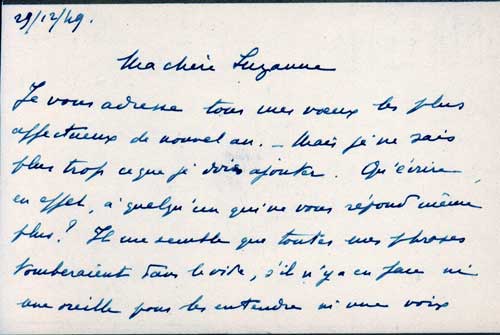 29/12/49.
Ma chère Suzanne
Je vous adresse tous mes vœux les plus
affectueux de nouvel an. – Mais je ne sais
plus trop ce que je dois ajouter. Qu'écrire,
en effet, à quelqu'un qui ne vous répond même
plus? Il me semble que toutes mes phrases
tomberaient dans le vide, s'il n'y a en face ni
une oreille pour les entendre ni une voix